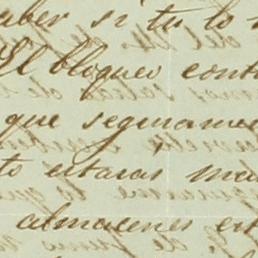 aber si tu lo
El bloqueo cont
que seguramen
to estaras mas
almacenes est